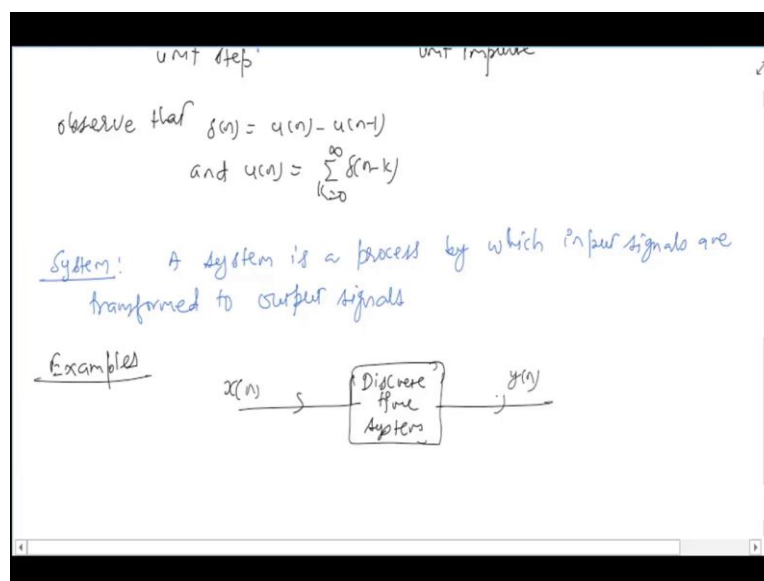 unit step
unit impulse
observe that δ(n) = u(n) - u(n-1)
and u(n) = ∑_{k=0}^{∞} δ(n-k)
System: A system is a process by which input signals are
transformed to output signals
Examples
x(n)
Discrete
time
system
y(n)